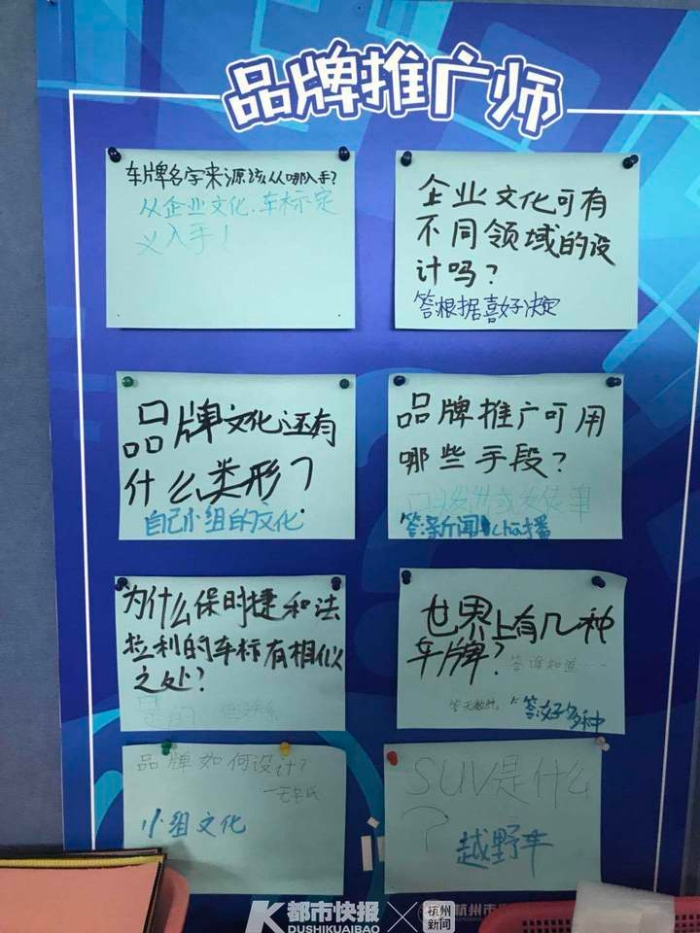 品牌推广师
车牌名字来源该从哪入手？
从企业文化、车标定
义入手！
企业文化可有
不同领域的设
计吗？
答根据喜好决定
品牌文化还有
什么类形？
自己小组的文化
品牌推广可用
哪些手段？
答:新闻cha播
为什么保时捷和法
拉利的车标有相似
之处？
是的
世界上有几种
车牌？
答谁知道……
答:好多种
品牌如何设计？
小组文化
SUV是什么
？
越野车
都市快报
DUSHIKUAIBAO
杭州
新闻
杭州市